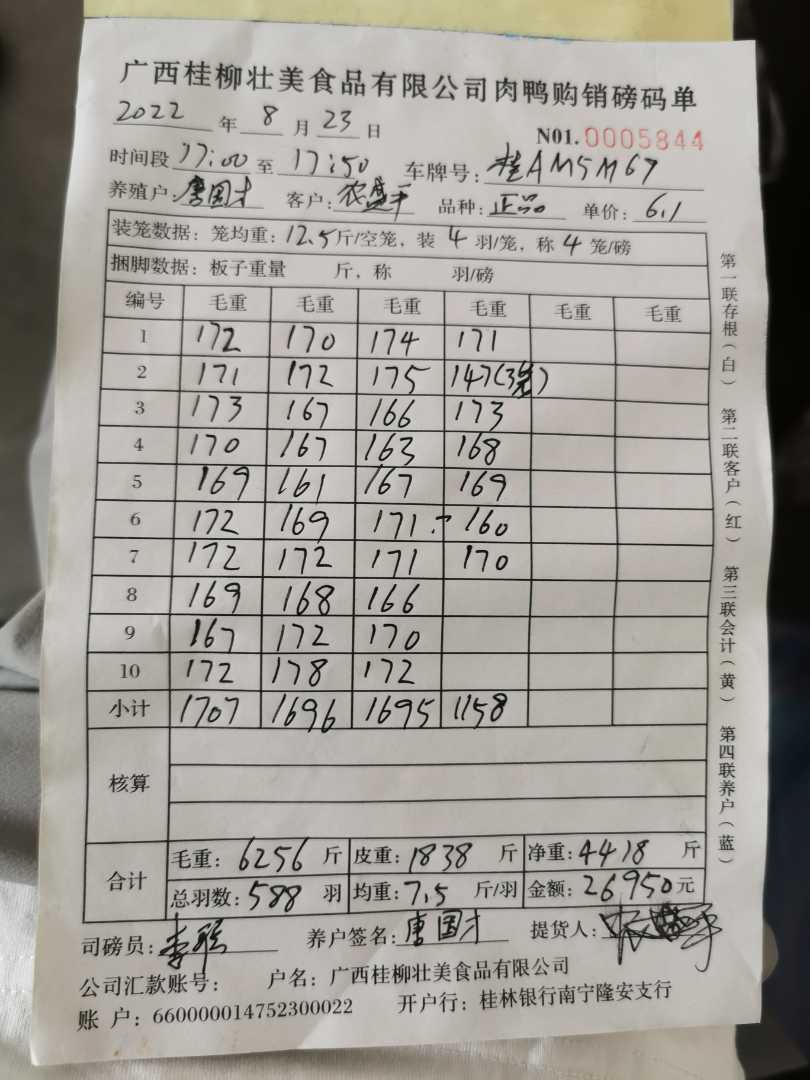 广西桂柳壮美食品有限公司肉鸭购销磅码单
2022 年 8 月 23 日 N01.0005844
时间段 17:00 至 17:50 车牌号: 桂AM5M67
养殖户: 唐国才 客户: 农盛平 品种: 正品 单价: 6.1
装笼数据: 笼均重: 12.5 斤/空笼, 装 4 羽/笼, 称 4 笼/磅
捆脚数据: 板子重量 斤, 称 羽/磅
编号 毛重 毛重 毛重 毛重 毛重 毛重
1 172 170 174 171
2 171 172 175 147(3笼)
3 173 167 166 173
4 170 167 163 168
5 169 161 167 169
6 172 169 171 160
7 172 172 171 170
8 169 168 166
9 167 172 170
10 172 178 172
小计 1707 1696 1695 1158
核算
合计 毛重: 6256 斤 皮重: 1838 斤 净重: 4418 斤
总羽数: 588 羽 均重: 7.5 斤/羽 金额: 26950 元
司磅员: 李 养户签名: 唐国才 提货人:
公司汇款账号: 户名: 广西桂柳壮美食品有限公司
账 户: 660000014752300022 开户行: 桂林银行南宁隆安支行
第一联存根(白) 第二联客户(红) 第三联会计(黄) 第四联养户(蓝)